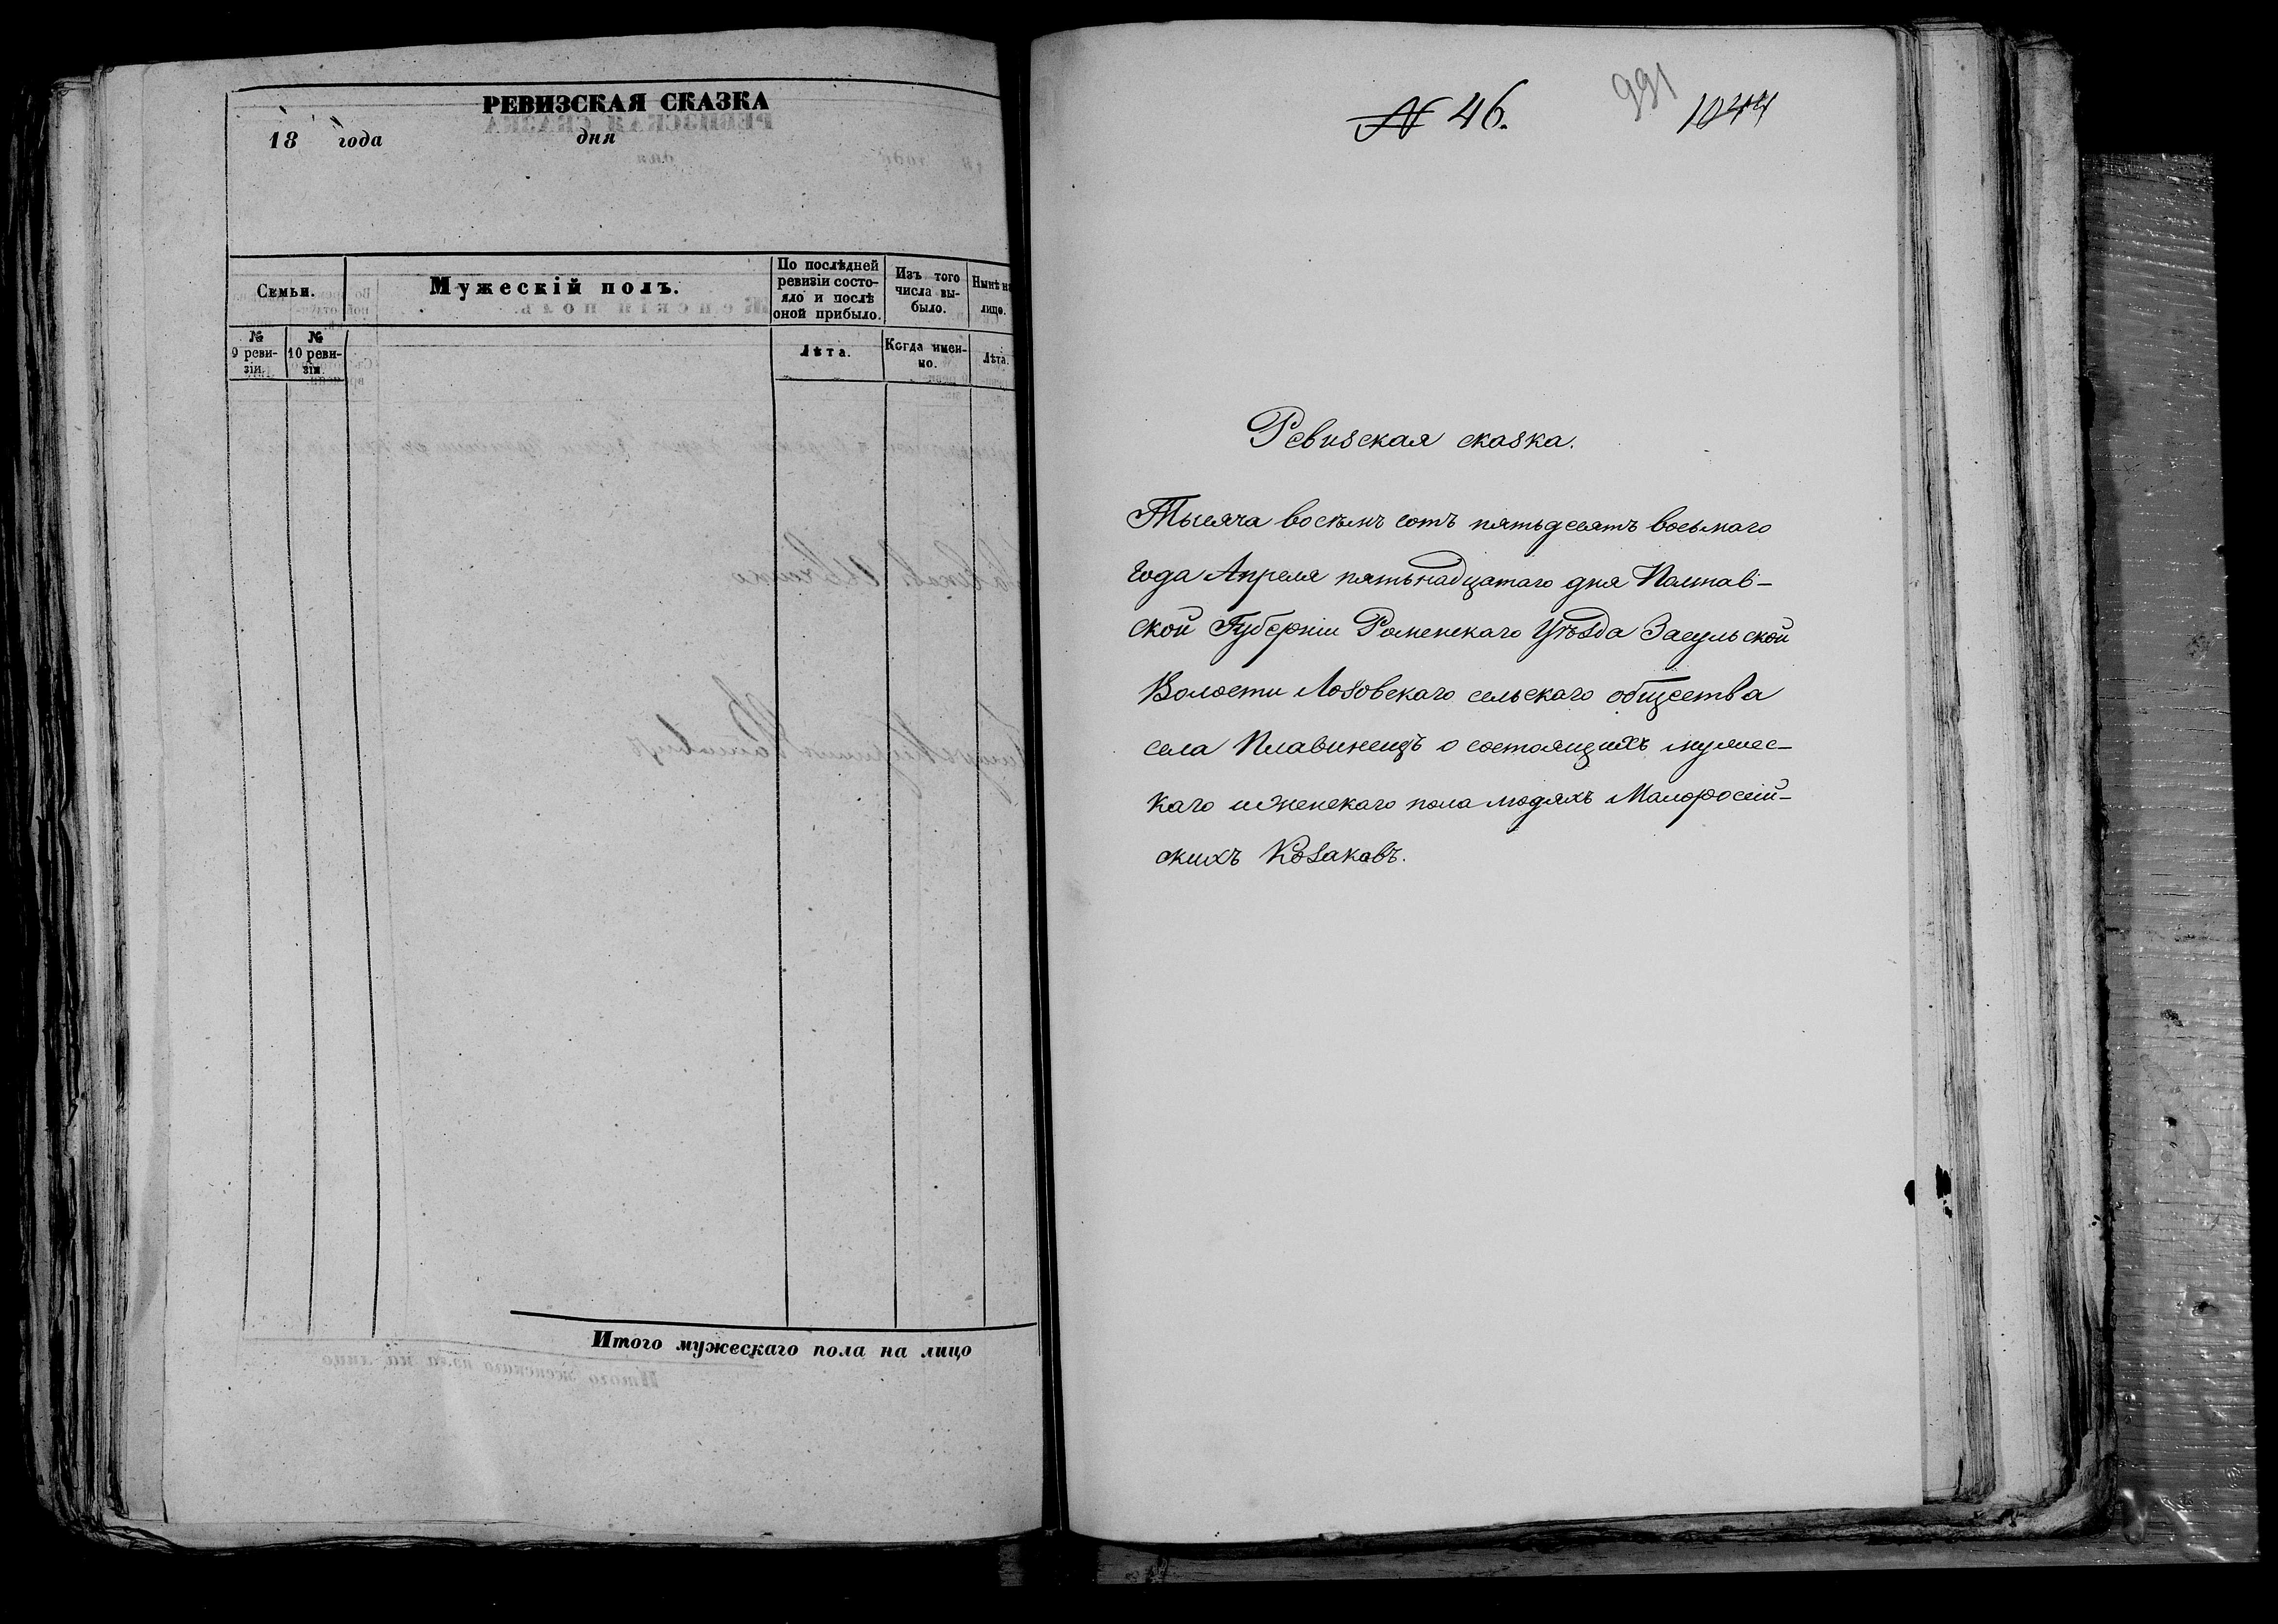 РЕВИЗСКАЯ СКАЗКА
18 года дня
Семьи.
Мужескій полъ.
По послѣдней ревизіи состояло и послѣ оной прибыло.
Изъ того числа выбыло.
Нынѣ на лицо.
№ 9 ревизіи.
№ 10 ревизіи.
Лѣта.
Когда именно.
Лѣта.
Итого мужескаго пола на лицо
№ 46.
991
1044
Ревизская сказка.
Тысяча восемъ сотъ пятьдесятъ восьмаго
года Апреля пятьнадцатаго дня Полтав-
ской Губерніи Роменскаго Уѣзда Засульской
Волости Лозовскаго сельскаго общества
села Плавинещъ о состоящихъ мужес-
каго и женскаго пола людяхъ Малоросій-
скихъ Козаковъ.